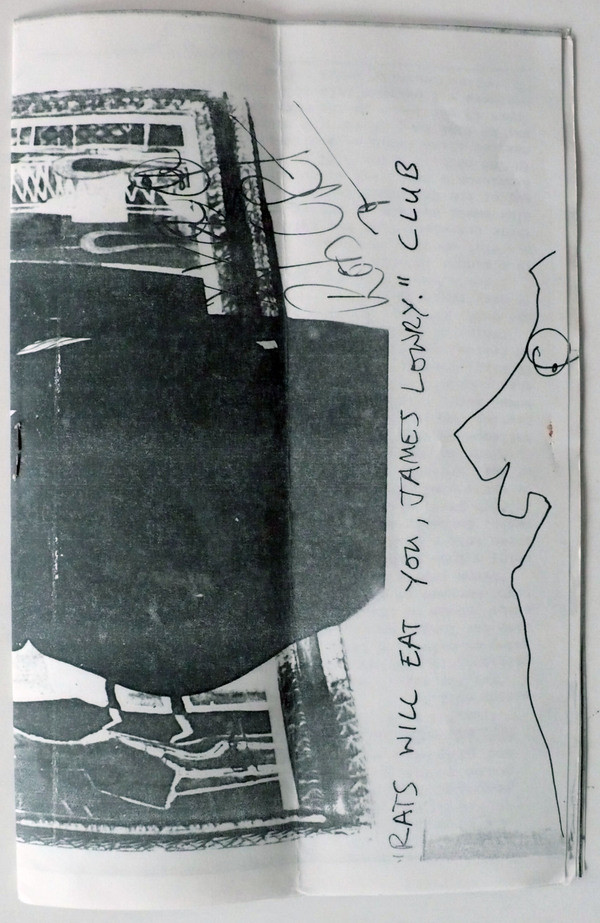 "RATS WILL EAT YOU, JAMES LOWRY." CLUB